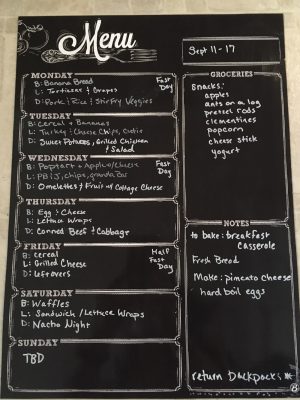 Menu
Sept 11-17
MONDAY
B: Banana Bread
L: Tortizzas & Grapes
D: Pork, Rice & Stirfry Veggies
Fast
Day
TUESDAY
B: Cereal + Bananas
L: Turkey & Cheese, Chips, Cutie
D: Sweet Potatoes, Grilled Chicken
& Salad
WEDNESDAY
B: Poptart + Apples/cheese
L: PB&J's, chips, granola bar
D: Omelettes & Fruit w/ Cottage Cheese
Fast
Day
THURSDAY
B: Egg & Cheese
L: Lettuce Wraps
D: Corned Beef & Cabbage
FRIDAY
B: Cereal
L: Grilled Cheese
D: Leftovers
Half
Day
SATURDAY
B: Waffles
L: Sandwich/Lettuce Wraps
D: Nacho Night
SUNDAY
TBD
GROCERIES
Snacks:
apples
ants on a log
pretzel rods
clementines
popcorn
cheese stick
yogurt
NOTES
to bake: breakfast
casserole
Fresh Bread
Make: pimento cheese
hard boil eggs
return backpacks